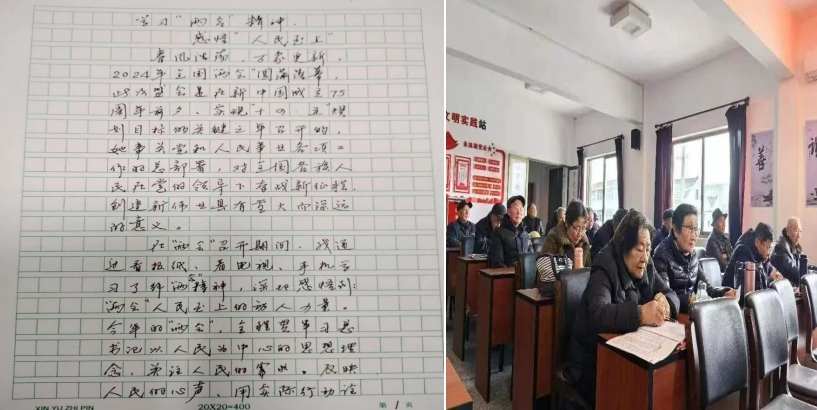 学习"两会"精神
感悟"人民至上"
春风浩荡，万象更新，
2024年全国两会"圆满落幕，
此次盛会是在新中国成立75
周年前夕、实现"十四.五"规
划目标的关键之年召开的，
她事关党和人民事业各项工
作的总部署，对全国各族人
民在党的领导下奋战新征程，
创建新伟业具有重大而深远
的意义。
在"两会"召开期间，我通
过看报纸、看电视、手机学
习了解"两会"精神，深切感悟到：
"两会"人民至上的动人力量。
今年的"两会"，全程贯串习总
书记以人民为中心的思想理
念，关注人民的需求，反映
人民的心声，用实际行动诠
XIN YU ZHI PIN
20X20=400
第 1 页
文明实践站
善